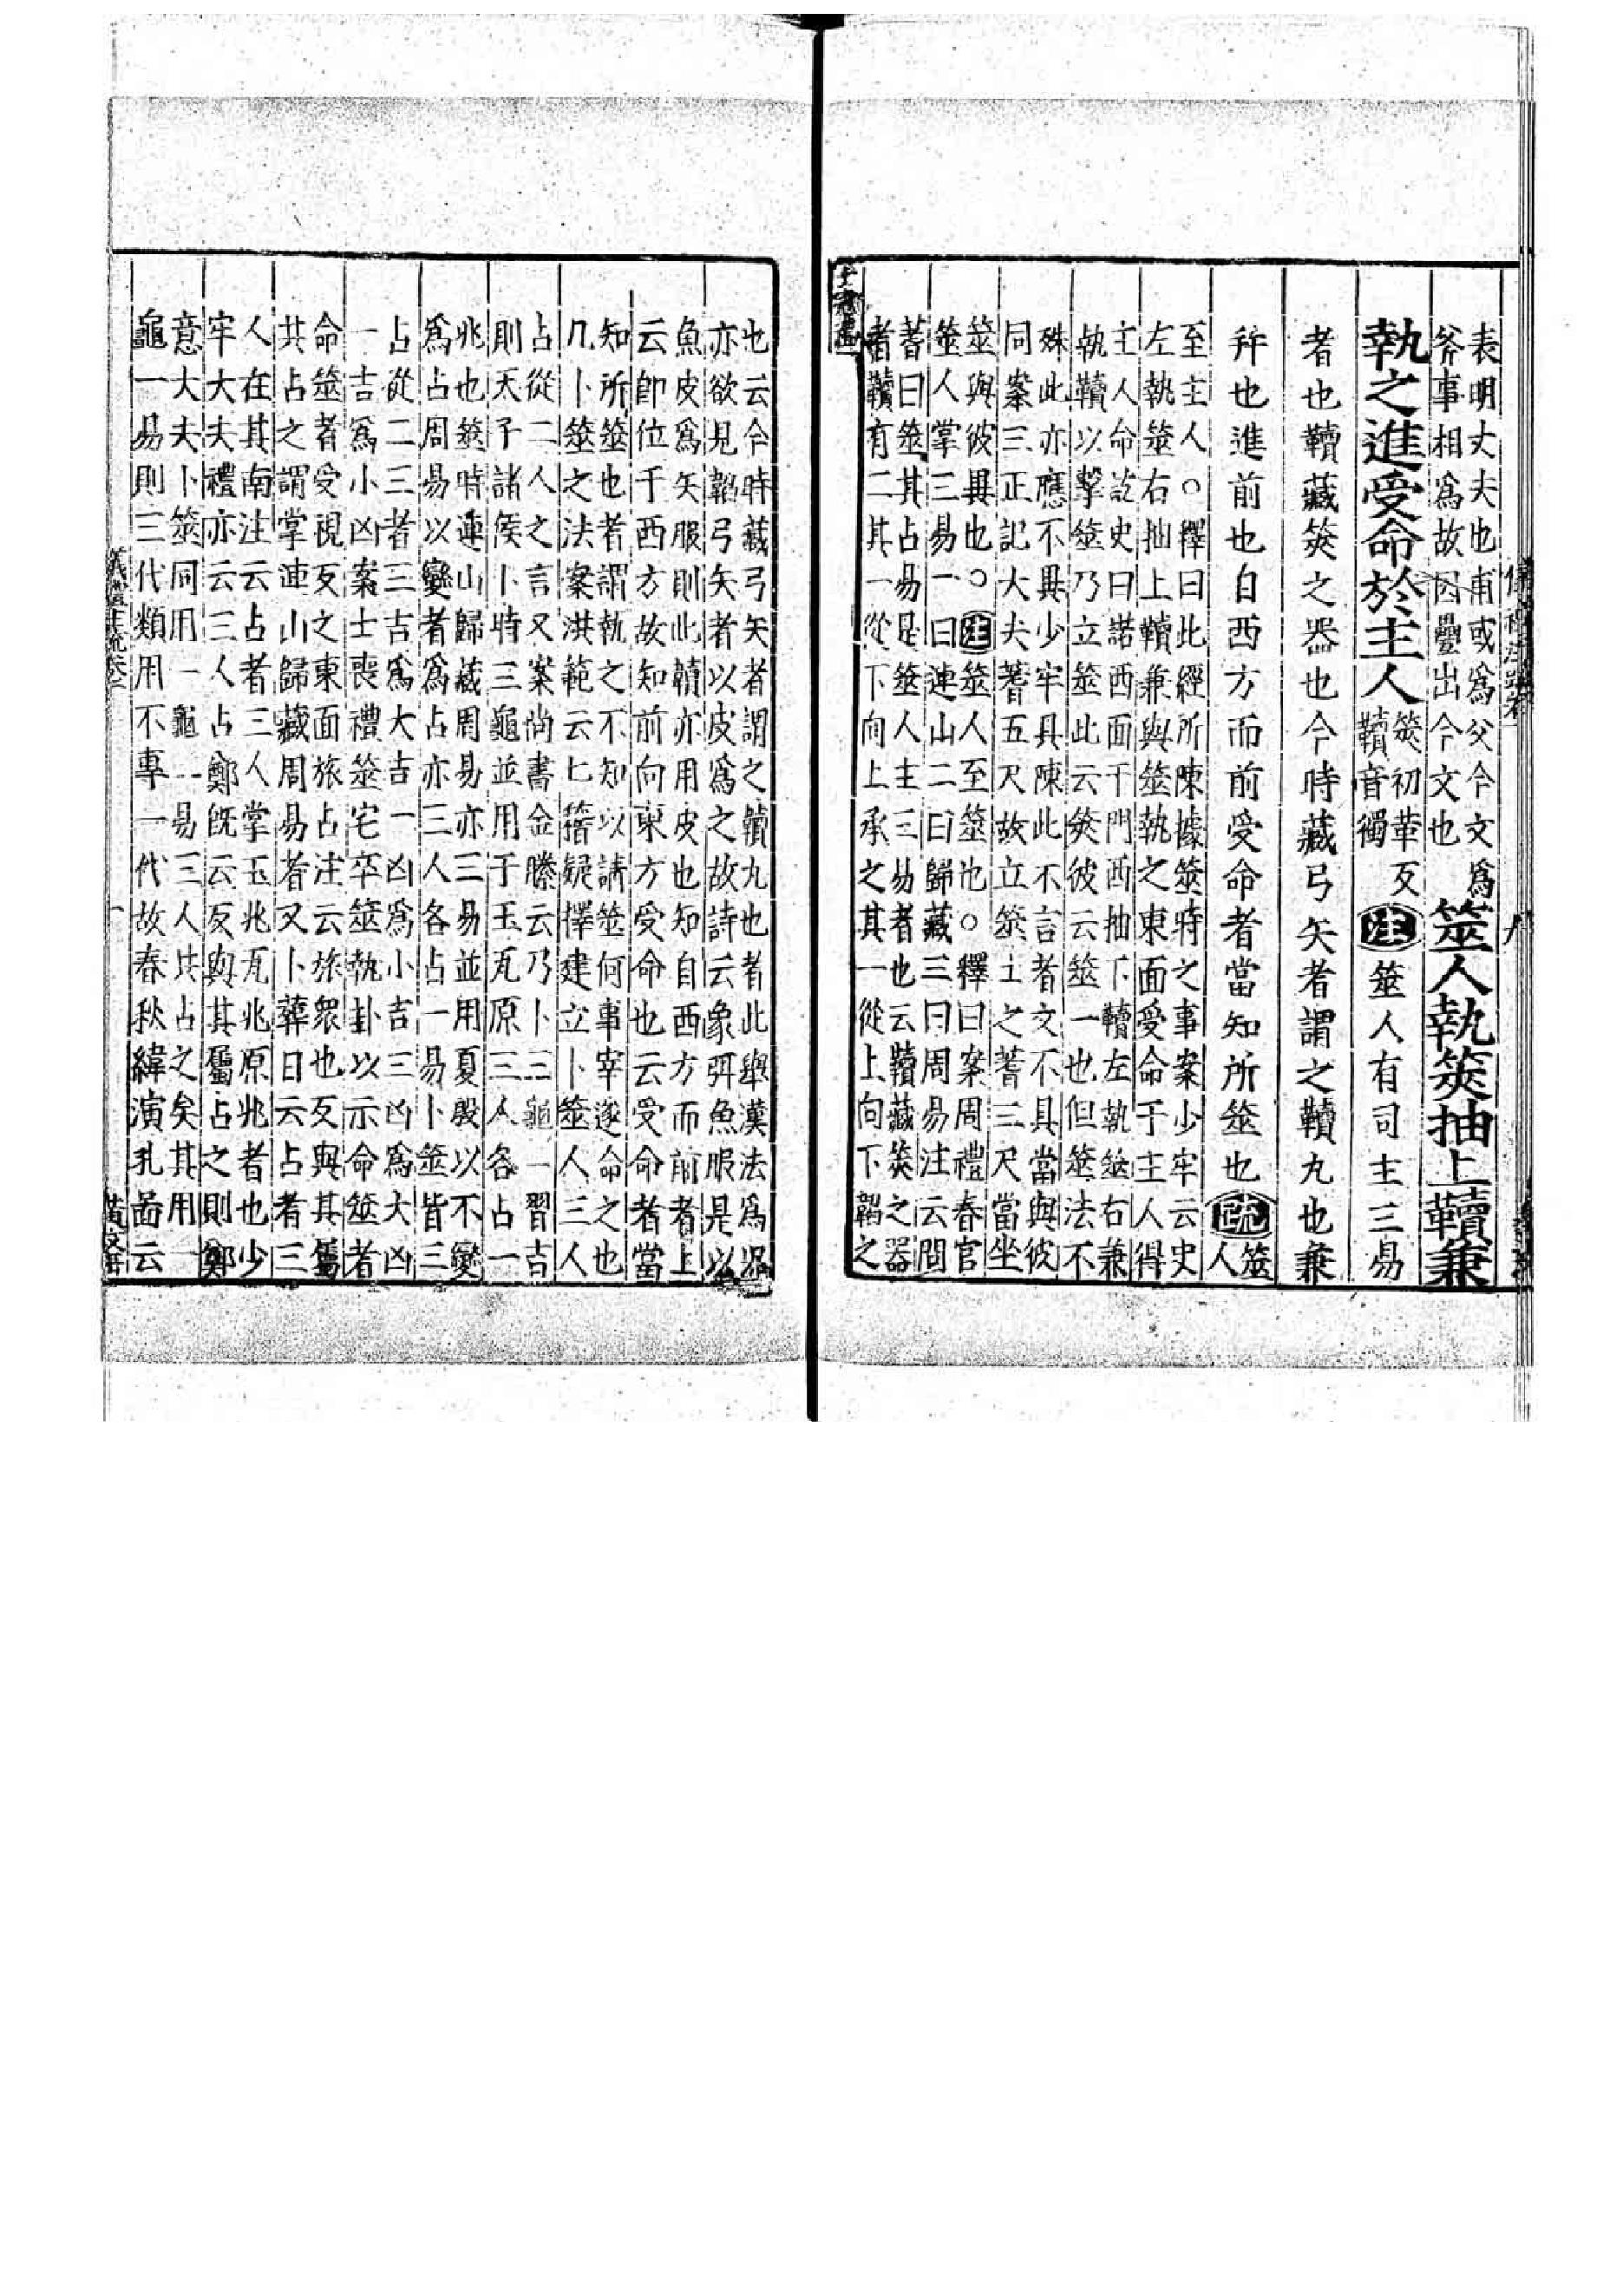 表明丈夫也甫或爲父今文爲
斧事相爲故因疊出今文也
筮人執筴抽上韇兼
執之進受命於主人
筴初革反
韇音獨
注筮人有司主三易
者也韇藏筴之器也今時藏弓矢者謂之韇丸也兼
幷也進前也自西方而前受命者當知所筮也疏筮
人
至主人○釋曰此經所陳據筴時之事案少牢云史
左執筮右抽上韇兼與筮執之東面受命于主人得
主人命訖史曰諾西面于門西抽下韇左執筮右兼
執韇以擊筮乃立筮此云筴彼云筮一也但筮法不
殊此亦應不異少牢具陳此不言者文不具當與彼
同案三正記大夫蓍五尺故立筮士之蓍三尺當坐
筮與彼異也○注筮人至筮也○釋曰案周禮春官
筮人掌三易一曰連山二曰歸藏三曰周易注云問
蓍曰筮其占易是筮人主三易者也云韇藏筴之器
者韇有二其一從下向上承之其一從上向下韜之
士冠禮一
也云今時藏弓矢者謂之韇丸也者此舉漢法爲况
亦欲見韜弓矢者以皮爲之故詩云象弭魚服是以
魚皮爲矢服則此韇亦用皮也知自西方而前者上
云卽位于西方故知前向東方受命也云受命者當
知所筮也者謂執之不知以請筮何事宰遂命之也
凡卜筮之法案洪範云七稽疑擇建立卜筮人三人
占從二人之言又案尚書金縢云乃卜三龜一習吉
則天子諸侯卜時三龜並用于玉瓦原三人各占一
兆也筮時連山歸藏周易亦三易並用夏殷以不變
爲占周易以變者爲占亦三人各占一易卜筮皆三
占從二三者三吉爲大吉一凶爲小吉三凶爲大凶
一吉爲小凶案士喪禮筮宅卒筮執卦以示命筮者
命筮者受視反之東面旅占注云旅衆也反與其屬
共占之謂掌連山歸藏周易者又卜葬日云占者三
人在其南注云占者三人掌玉兆瓦兆原兆者也少
牢大夫禮亦云三人占鄭旣云反與其屬占之則鄭
意大夫卜筮同用一龜一易三人共占之矣其用一
龜一易則三代類用不專一代故春秋緯演孔啚云